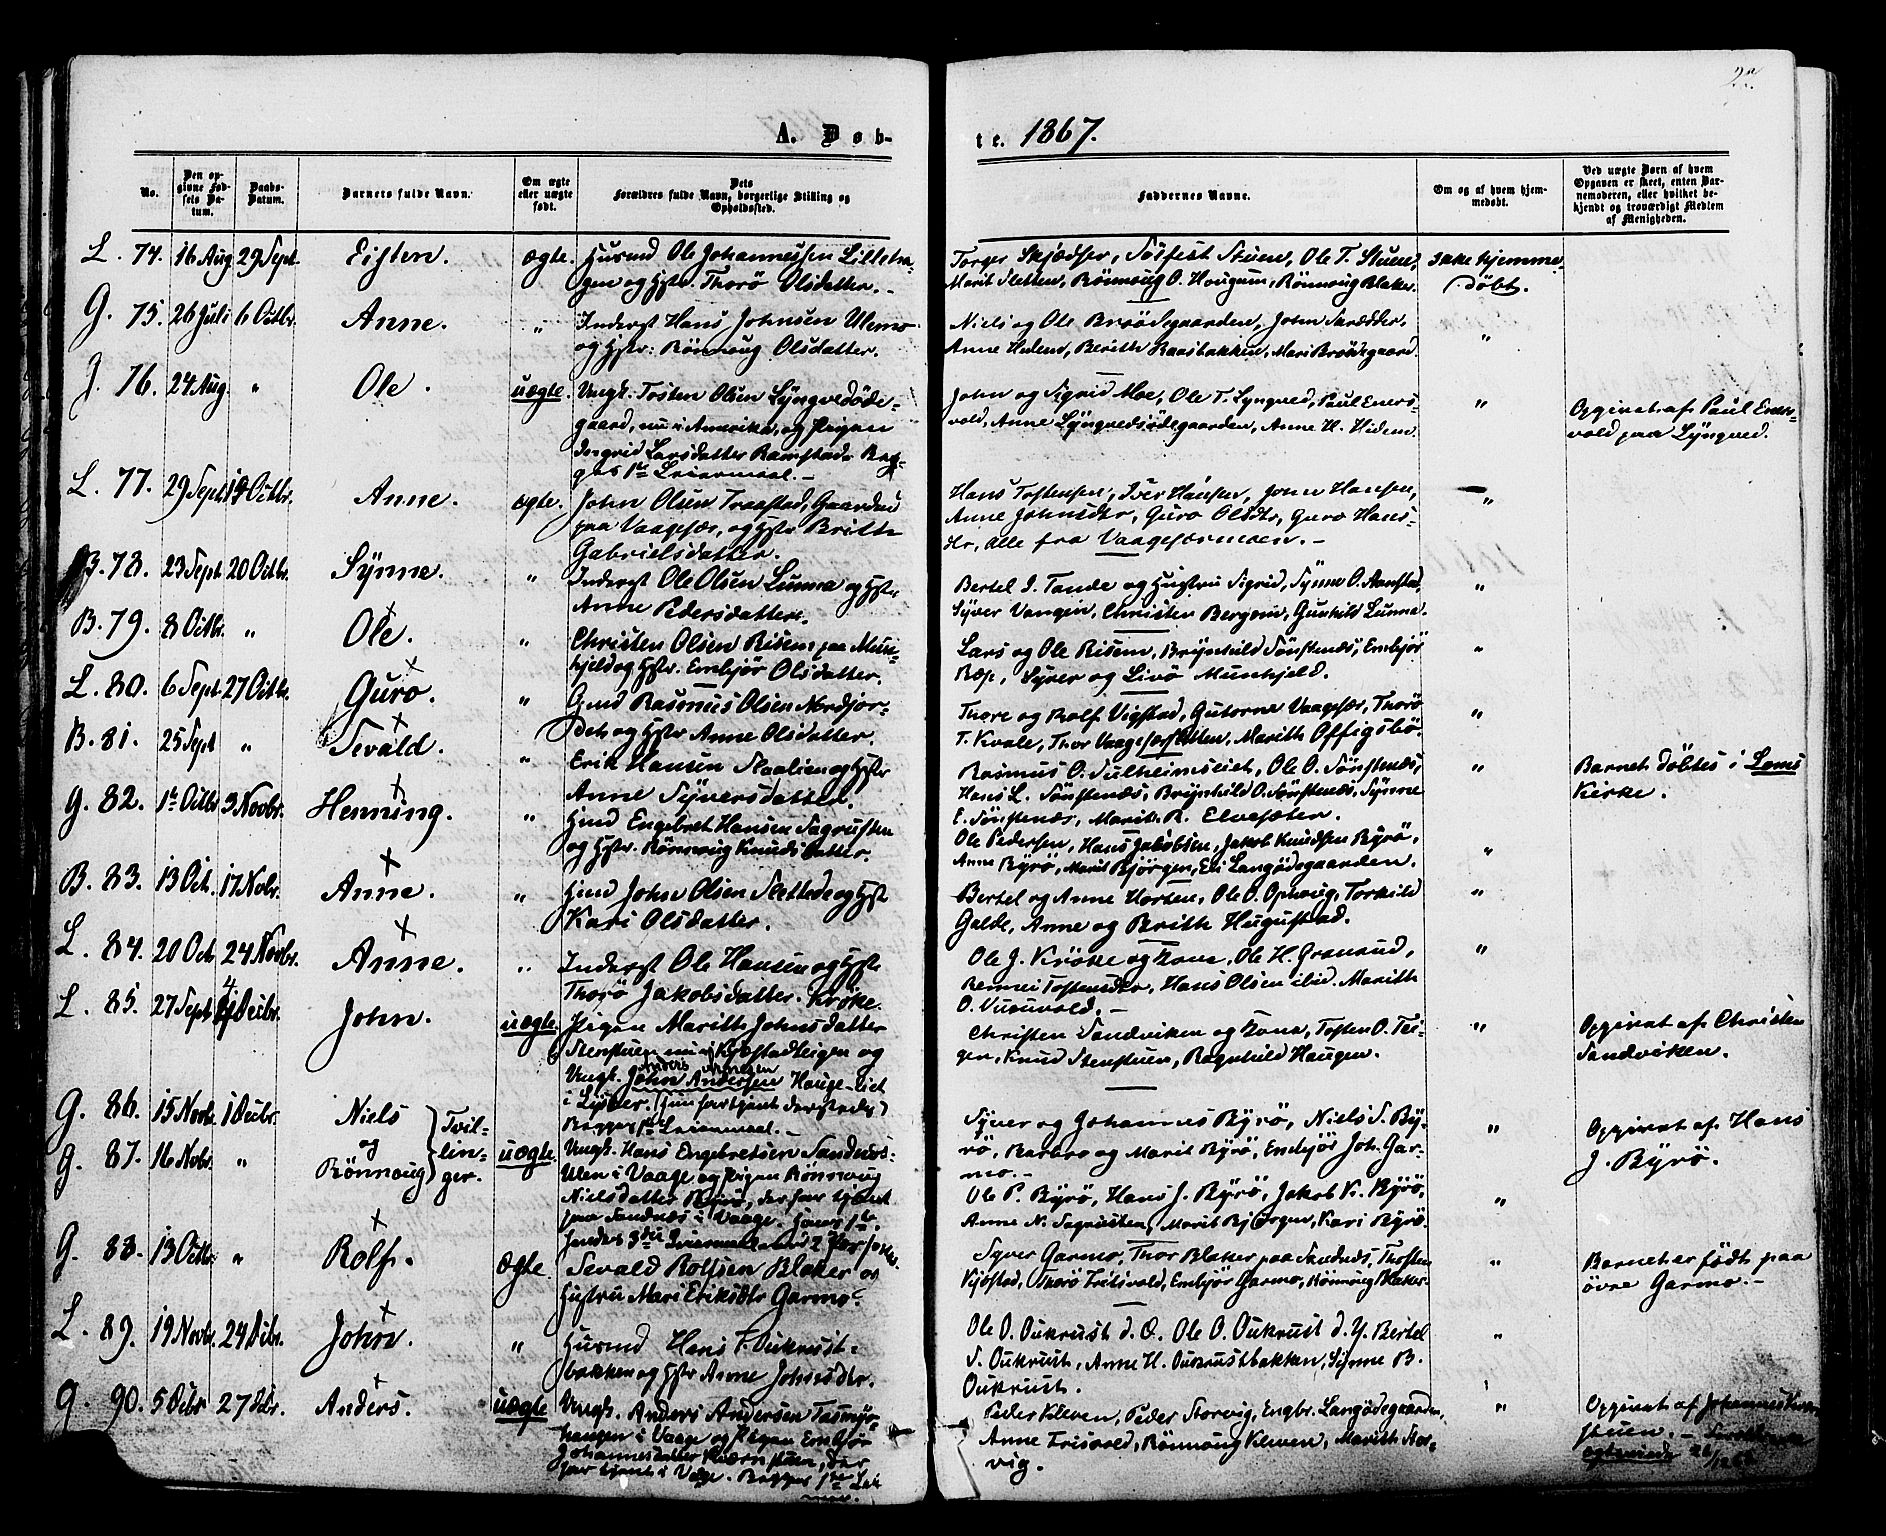 A. Døb-
te. 1867.
No.
Den op-
givne Fød-
sels Da-
tum.
Daabs-
Datum.
Barnets fulde Navn.
Om ægte
eller uægte
født.
Dets
Forældres fulde Navn, borgerlige Stilling og
Opholdssted.
Faddernes Navne.
Om og af hvem hjem-
medøbt.
Ved uægte Børn af hvem
Opgaven er skeet, enten Bar-
nemoderen, eller hvilket be-
kjendt og troværdigt Medlem
af Menigheden.
L. 74. 16 Aug 29 Sept. Eisten. ægte. Husmd Ole Johannessen Lilleha-
gen og Hstr. Thorö Olsdatter. -
Torger Skjædser, Sölfest Stuen, Ole T. Stuen,
Marit Sletten, Rönnoug O. Hougum, Rönnoug Blaker.
Ikke hjemme-
döbt.
G. 75. 26 Juli 6 Octbr. Anne. " Inderst Hans Johnsen Ulemo
og Hstr: Rönnoug Olsdatter.
Niels og Ole Brödegaarden, John
Anne Hidem, Berith Baasbakken, Mari Brödegaard.
"
J. 76. 24 Aug. " Ole. uægte. Ungk. Tosten Olsen Lyngvedöde-
gaard, nu i Amerika, og Pigen
Ingrid Larsdatter Ramstad. Beg-
ges 1ste Leiermaal. -
John og Sigrid Moe, Ole T. Lyngved, Paul Eners-
vold, Anne Lyngvedsödegaarden, Anne H. Hidem.
"
Opgivet af Paul Eners-
vold paa Lyngved.
L. 77. 29 Sept. 19 Octbr. Anne. ægte. John Olsen Traastad, Gaarden
paa Vaagesær, og Hstr Britte
Gabrielsdatter.
Hans Tostensen, Iver Hansen, Hansen,
Anne Johnsdtr, Guro Olsdtr, Guro Hans-
dtr, alle fra Vaagesærmoen. -
"
B. 78. 23 Sept. 20 Octbr. Synne. " Inderst Ole Olsen Lunna og Hstr
Anne Pedersdatter.
Bertel I. Tande og Hustru Sigrid, Synne O. Aanstad,
Syver Vangen, Christen Bergom, Gunhild Lunna.
"
B. 79. 8 Octbr. " Ole. " Christen Olsen Risem paa Mun-
hjeld og Hstr. Embjör Olsdatter.
Lars og Ole Risem, Brynhild Sönstenes, Embjör
Ræp, Syver og Livö Munhjeld.
"
L. 80. 6 Sept. 27 Octbr. Guro. " Gmd Rasmus Olsen Nordjor-
det og Hstr Anne Olsdatter.
Thore og Rolf Vigstad, Gutorm Vaagesær, Thorö
T. Kvale, Thor Vaagesærsletten, Marith Offigsbö.
"
B. 81. 25 Sept " Sevald. " Erik Hansen Slaalien og Hstr
Anne Syversdatter.
Rasmus O. Sulheimseiet, Ole O. Sönstenæs,
Hans L. Sönstenæs, Brynhild O. Sönstenæs, Synne
E. Sönstenæs, Marit R. Elvesæter.
"
Barnet döbtes i Loms
Kirke.
G. 82. 1ste Octbr 3 Novbr. Henning. " Gmd Engebret Hansen Sagrusten
og Hstr. Rönnoug Knudsdatter.
Ole Pedersen, Hans Jakobsen, Jakob Knudsen Byrö,
Anne Byrö, Marit Bjørgen, Eli Langödegaarden.
"
B. 83. 13 Oct. 17 Nobr. Anne. " Gmd John Olsen Slettede og Hstr
Kari Olsdatter.
Bertel og Anne Horten, Ole O. Opnoug, Torkild
Galde, Anne og Brith Hugustad.
"
L. 84. 20 Oct. 24 Novbr. Anne. " Inderst Ole Hansen og Hstr
Thorö Jakobsdatter. Kröke.
Ole J. Kröke og Kone, Ole H. Granrud,
Tostensdtr, Hans Olsen ibid. Marith
O. -
"
L. 85. 27 Sept 4 Decbr. John. uægte. Pigen Marith Johnsdatter
Stenstuen nu i Kjæstadteigen og
Ungk. John Andersen Hauge-eiet
i Lyster. (hun har tjent dersteds)
Begges 1ste Leiermaal. -
Christen Sandviken og Kone, Tosten O. Tes-
gen, Knud Stenstuen, Ragnhild Haugen.
"
Opgivet af Christen
Sandviken.
G. 86. 15 Novbr. 1 Decbr. Niels
og
G. 87. 16 Nobr. " Rönnoug
Tvil-
lin-
ger.
uægte. Ungk. Hans Engebretsen Sandnes-
Ulen i Vaage og Pigen Rönnoug
Nielsdatter Byrö, der har tjent
paa Sandnes i Vaage. Hans 1ste,
hendes 3die Leiermaal med 2
Syver og Johannes Byrö, Niels S. By-
rö, Barbro og Marit Byrö, Embjör Joh. Gar-
mo. -
Ole P. Byrö, Hans J. Byrö, Jakob K. Byrö,
Anne N. Sagrusten, Marit Bjørgen, Kari Byrö.
"
"
Opgivet af Hans
J. Byrö.
G. 88. 13 Octbr. " Rolf. ægte. Sevald Rolfsen Blaker og
Hustru Mari Eriksdtr Garmo.
Syver Garmo, Thor Blaker paa Sandnes, Thosten
Kjöstad, Thorö Frilsvold, Embjör Garmo, Rönnoug Blaker.
"
Barnet er födt paa
övre Garmo. -
L. 89. 19 Novbr. 24 Decbr. John. " Husmd Hans T. Oukrust-
bakken og Hstr Anne Johnsdtr.
Ole O. Oukrust d. Æ. Ole O. Oukrust d. Y. Bertel
S. Oukrust, Anne H. Oukrustbakken, Synne B.
Oukrust.
"
G. 90. 5 Decbr 27 Debr. Anders. uægte Ungk. Anders Andersen
haugen i Vaage og Pigen Embjör
Johannesdatter Kvernstuen, der
har tjent i Vaage. Begges 1ste Lei-
Peder Kleven, Peder Storvig, Engbr. Langödegaarden,
Anne Frisvold, Rönnoug Kleven, Marith Stor-
vig.
"
Opgivet af Johannes
stuen. -